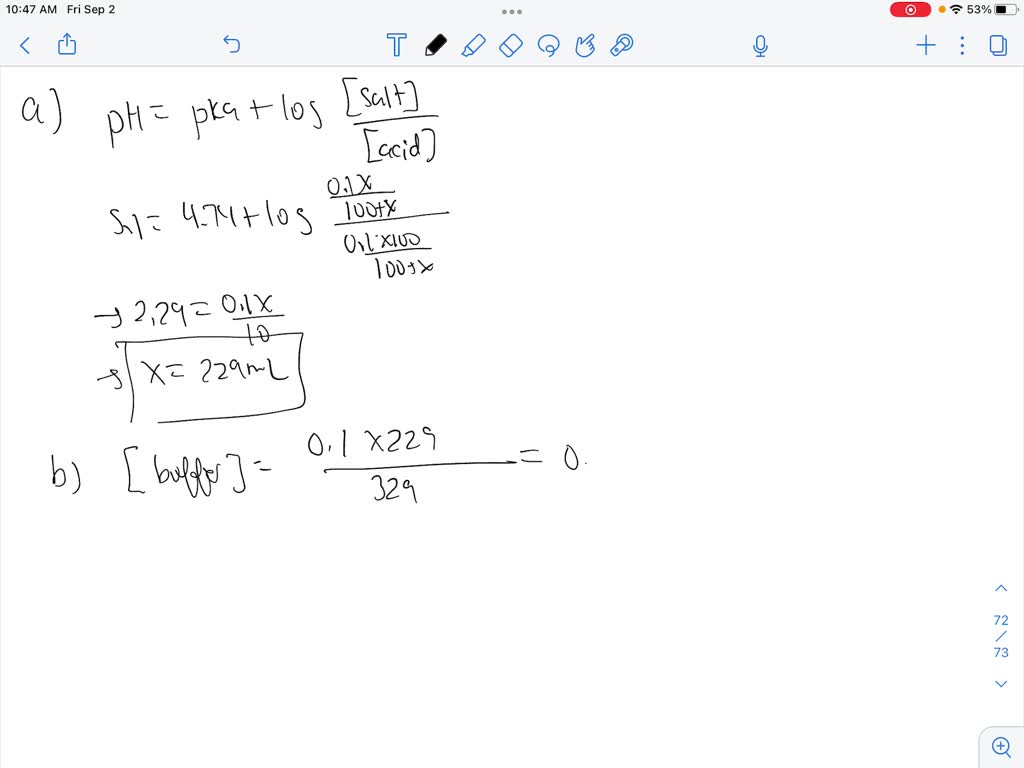 10:47 AM Fri Sep 2
53%
T
a) pH = pka + log [salt]
[acid]
5.1 = 4.74 + log 0.1x
100+x
0.1 x100
100+x
→ 2.29 = 0.1x
10
→ x = 229mL
b) [buffer] = 0.1 x229 = 0.
329
72
73